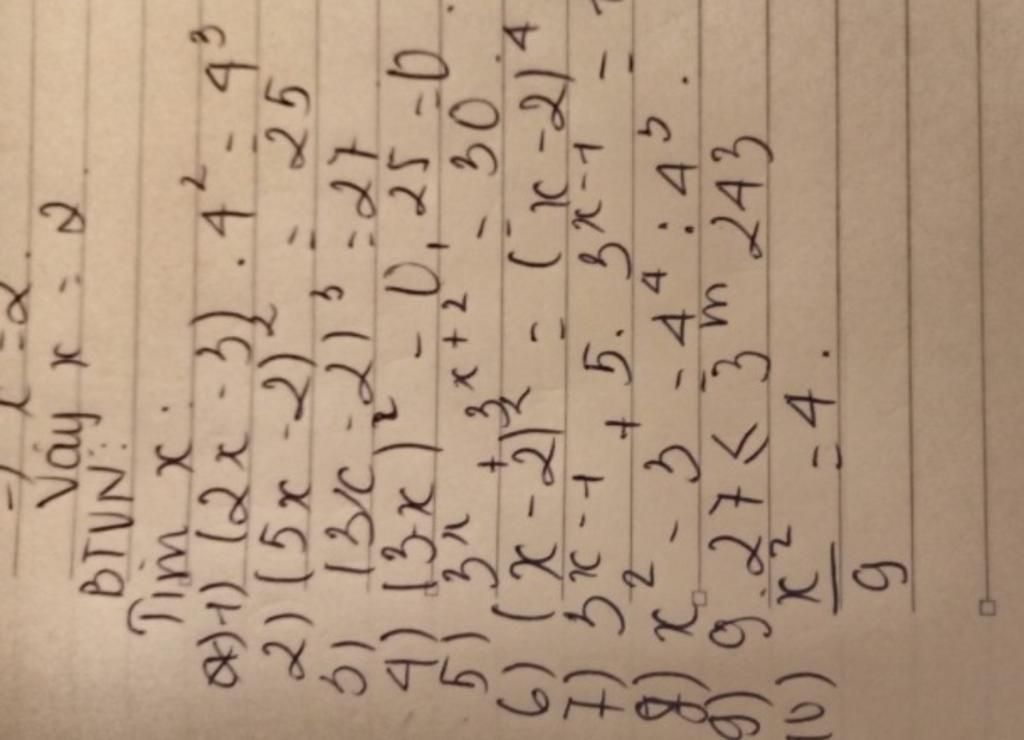 =) x = 2.
Vây x = 2
BTVN:
Tìm x.
a) 1) (2x - 3) . 4² = 4³
2) (5x - 2)² = 25
3) (3x - 2)³ = 27
4) (3x)² - 0,25 = 0
5) 3ˣ + 3ˣ⁺² = 30
6) (x - 2)² = (x - 2)⁴
7) 3ˣ⁻¹ + 5. 3ˣ⁻¹ =
8) x² - 3 = 4⁴ : 4³.
9) 9.27 ≤ 3ᵐ 243
10) x²/9 = 4.